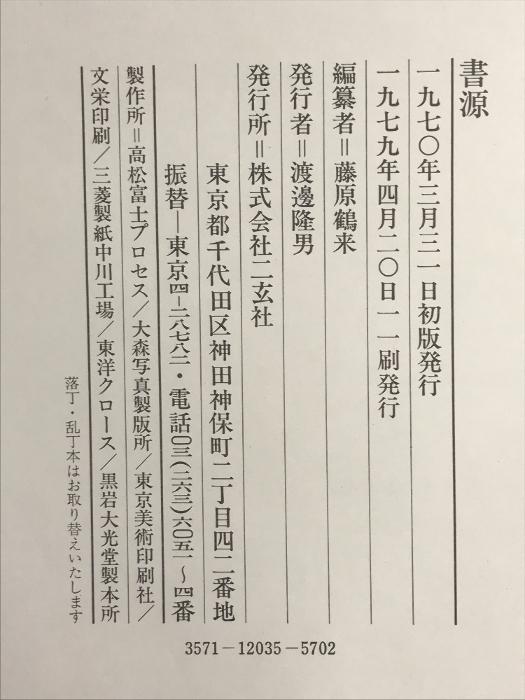 書源
一九七〇年三月三一日初版発行
一九七九年四月二〇日一一刷発行
編纂者＝藤原鶴来
発行者＝渡邊隆男
発行所＝株式会社二玄社
東京都千代田区神田神保町二丁目四二番地
振替―東京四―二八七八二・電話〇三(二六三)六〇五一〜四番
製作所＝高松富士プロセス/大森写真製版所/東京美術印刷社/
文栄印刷/三菱製紙中川工場/東洋クロース/黒岩大光堂製本所
落丁・乱丁本はお取り替えいたします
3571－12035－5702